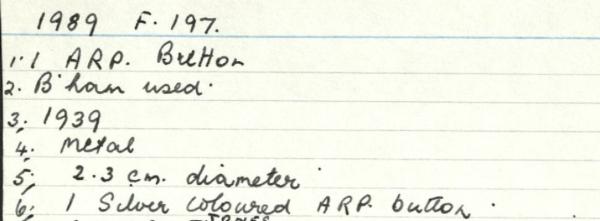 1989 F. 197.
1. 1 ARP. Button
2. B'ham used.
3. 1939
4. Metal
5. 2.3 cm. diameter
6. 1 Silver coloured ARP. button.